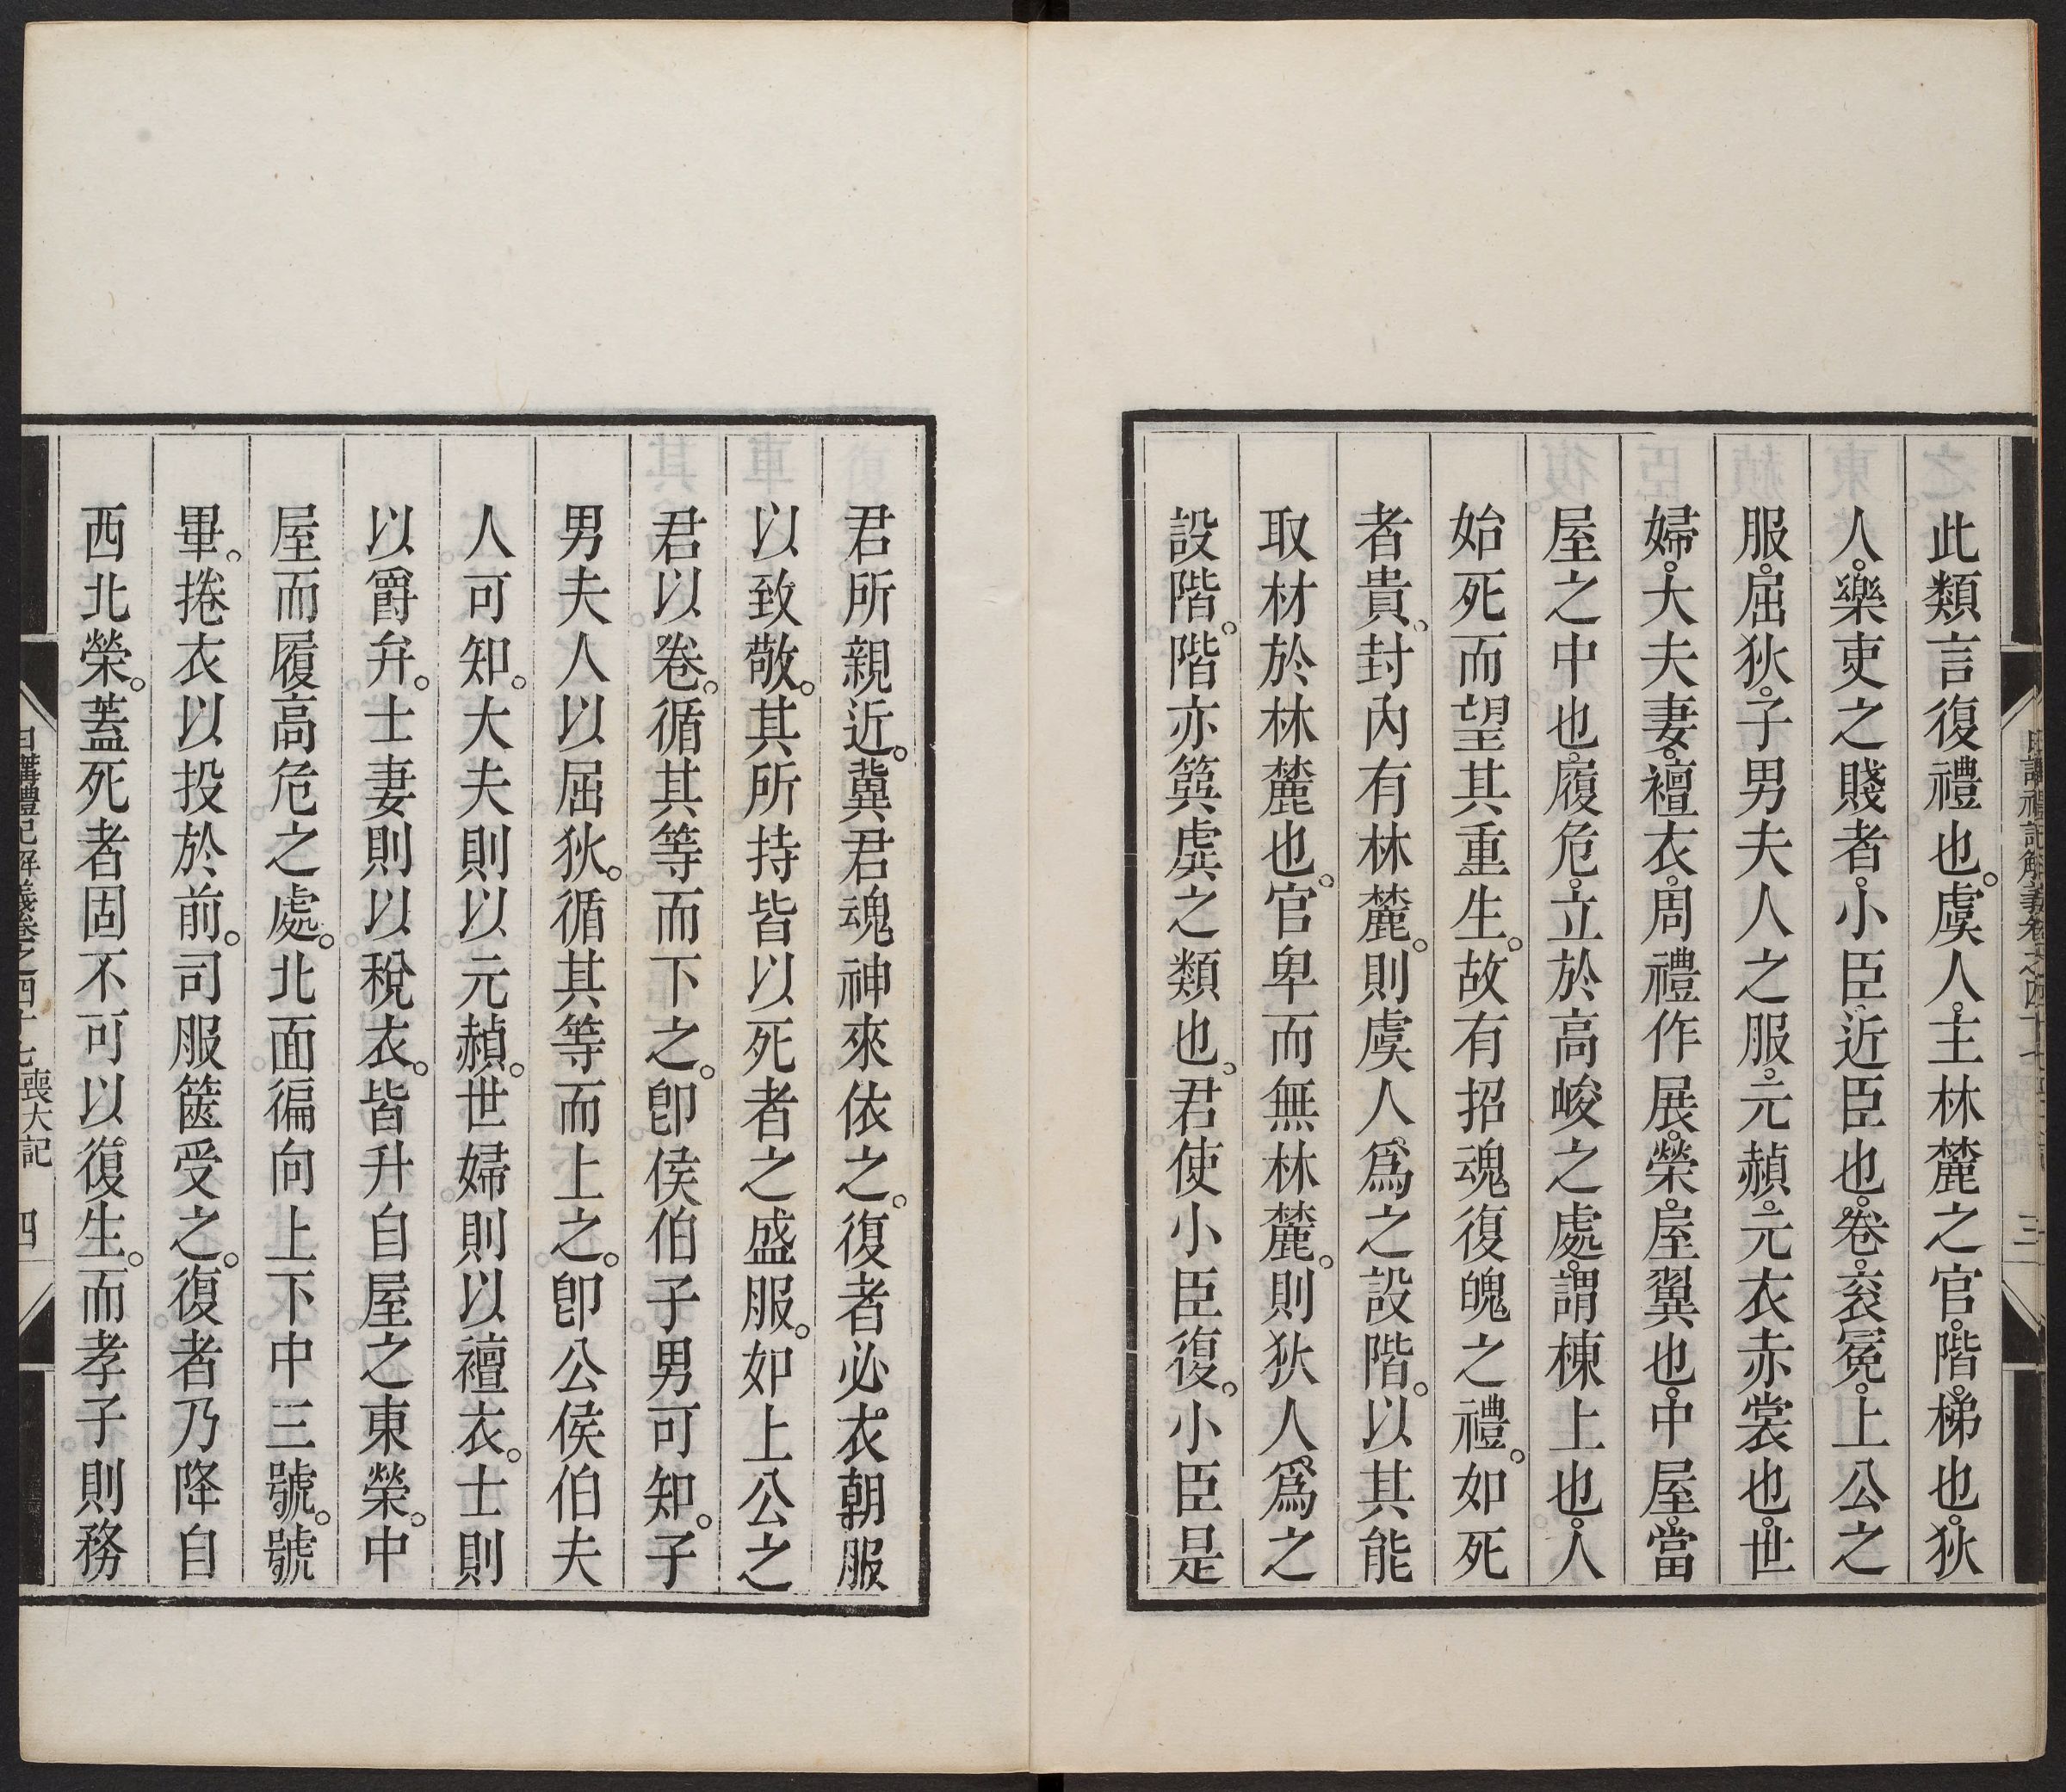 此類言復禮也。虞人。主林麓之官。階。梯也。狄
人。樂吏之賤者。小臣。近臣也。卷。袞冕。上公之
服。屈狄。子男夫人之服。元赬。元衣赤裳也。世
婦。大夫妻。襢衣。周禮作展。榮。屋翼也。中屋。當
屋之中也。履危。立於高峻之處。謂棟上也。人
始死而望其重生。故有招魂復魄之禮。如死
者貴。封內有林麓。則虞人爲之設階。以其能
取材於林麓也。官卑而無林麓。則狄人爲之
設階。階亦簨虡之類也。君使小臣復。小臣是
君所親近。冀君魂神來依之。復者必衣朝服
以致敬。其所持皆以死者之盛服。如上公之
君以卷。循其等而下之。卽侯伯子男可知。子
男夫人以屈狄。循其等而上之。卽公侯伯夫
人可知。大夫則以元赬。世婦則以襢衣。士則
以爵弁。士妻則以稅衣。皆升自屋之東榮。中
屋而履高危之處。北面徧向上下中三號。號
畢。捲衣以投於前。司服篋受之。復者乃降自
西北榮。蓋死者固不可以復生。而孝子則務
日講禮記解義卷之四十七 喪大記 四